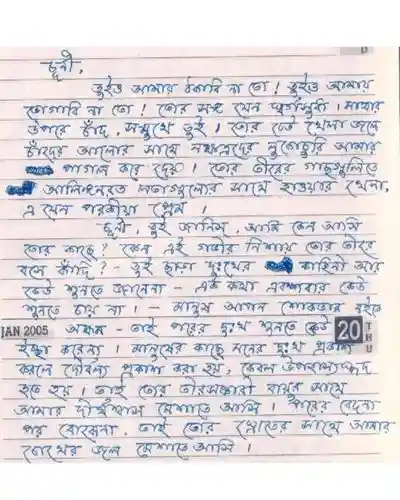 চূর্নী,
তুইও আমায় ঠকাবি না তো! তুইও আমায়
ভোগাবি না তো! তোর সঙ্গ যেন স্বর্গসুধা। মাথার
উপরে চাঁদ, সম্মুখে তুই। তোর ঢেউ খেলা জলে
চাঁদের আলোর সাথে নক্ষত্রদের লুকোচুরি আমার
পাগল করে দেয়। তোর তীরের গাছগুলিতে
আলিঙ্গনরত লতাগুলোর সাথে হাওয়ার খেলা,
এ যেন পরকীয়া প্রেম।
চূর্নী, তুই জানিস, আমি কেন আসি
তোর কাছে? কেন এই গভীর নিশায় তোর তীরে
বসে কাঁদি? - তুই ছাড়া দুঃখের কাহিনী আর
কেউ শুনতে জানেনা - এই কথা একশোবার কেউ
শুনতে চায় না। - মানুষ আপন শোকভার বইতে
JAN 2005 অক্ষম - তাই পরের দুঃখ শুনতে কেউ 20 THU
ইচ্ছা করেনা। মানুষের কাছে মনের দুঃখ প্রকাশ
করলে দৌর্বল্য প্রকাশ করা হয়, কেবল উপহাসাস্পদ
হতে হয়। তাই তোর তীরসঞ্চারী বায়ুর সাথে
আমার দীর্ঘশ্বাস মেশাতে আসি। পরের বেদনা
পর বোঝেনা, তাই তোর স্রোতের সাথে আমার
চোখের জল মেশাতে আসি।